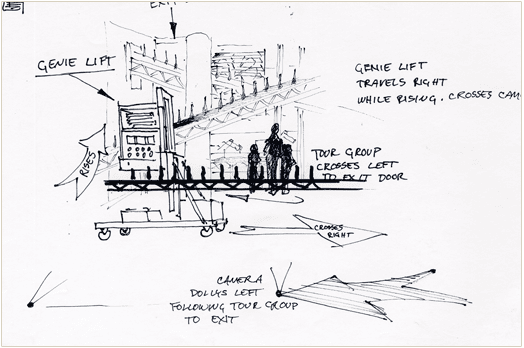 EXIT
GENIE LIFT
GENIE LIFT
TRAVELS RIGHT
WHILE RISING. CROSSES
RISES
TOUR GROUP
CROSSES LEFT
TO EXIT DOOR
CROSSES
RIGHT
CAMERA
DOLLYS LEFT
FOLLOWING TOUR GROUP
TO EXIT